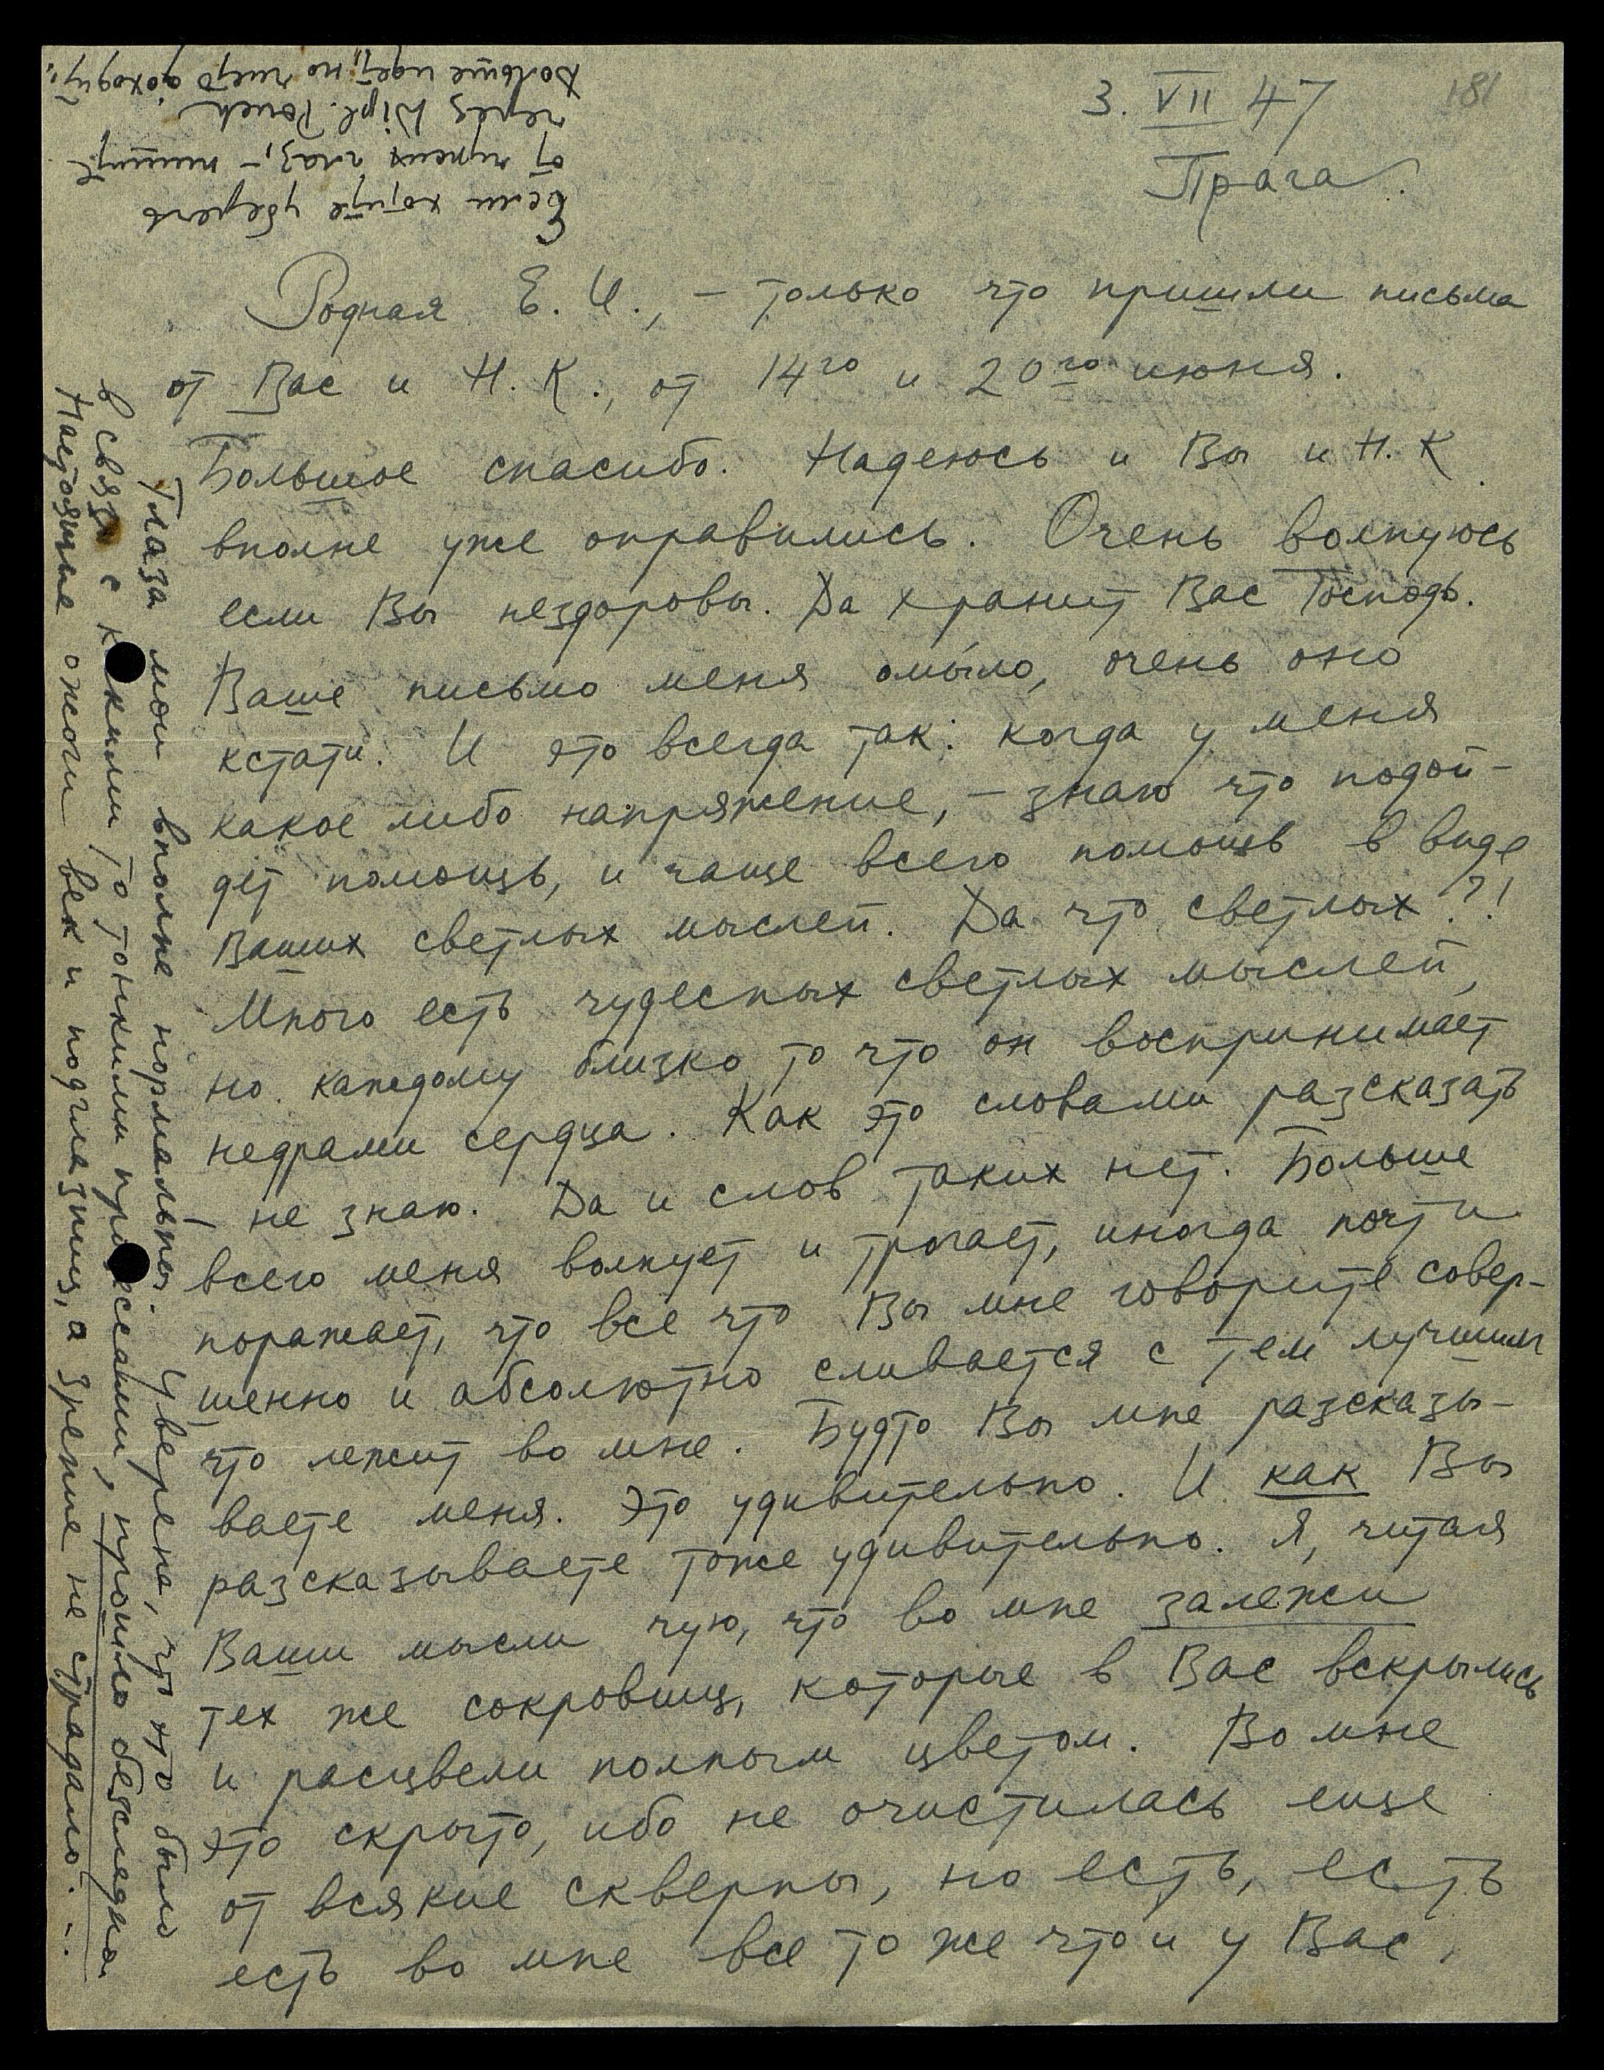 3. VII 47
181
Прага.
Родная Е. И., – только что пришли письма
от Вас и Н. К., от 14го и 20го июня.
Большое спасибо. Надеюсь и Вы и Н. К.
вполне уже оправились. Очень волнуюсь
если Вы нездоровы. Да хранит Вас Господь.
Ваше письмо меня омыло, очень оно
кстати. И это всегда так: когда у меня
какое либо напряжение, – знаю что подой-
дет помощь, и чаще всего помощь в виде
Ваших светлых мыслей. Да что светлых?!
Много есть чудесных светлых мыслей,
но каждому близко то что он воспринимает
недрами сердца. Как это словами разсказать
– не знаю. Да и слов таких нет. Больше
всего меня волнует и трогает, иногда почти
поражает, что все что Вы мне говорите совер-
шенно и абсолютно сливается с тем лучшим
что лежит во мне. Будто Вы мне разсказы-
ваете меня. Это удивительно. И как Вы
разсказываете тоже удивительно. Я, читая
Ваши мысли чую, что во мне залежи
тех же сокровищ, которые в Вас вскрылись
и расцвели полным цветом. Во мне
это скрыто, ибо не очистилась еще
от всякие скверны, но есть, есть
есть во мне все то же что и у Вас,
Глаза мои вполне нормальны. Уверена, что это было
в связи с какими то тонкими процессами, прошло безследно.
Настоящие ожоги век и подглазниц, а зрение не страдало. –.
Если хотите уберечь
от чужих глаз, – пишите
через Dipl. Pouch
Дольше идет, но чисто доходит.